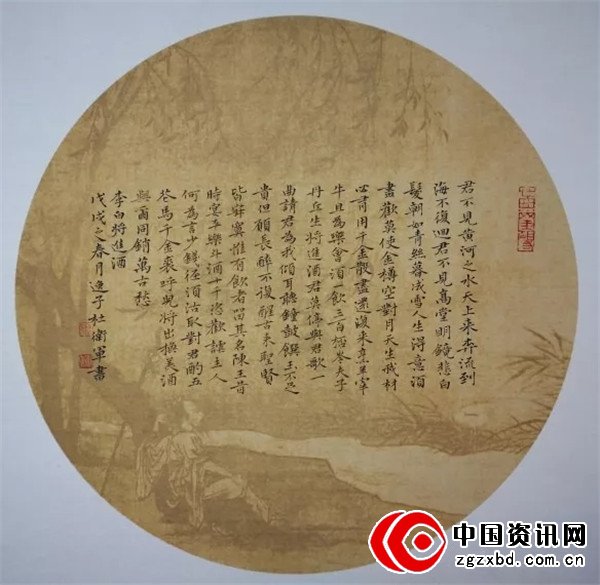 君不見黄河之水天上来奔流到
海不復迴君不見髙堂明鏡悲白
髮朝如青絲暮成雪人生得意須
盡歡莫使金樽空對月天生我材
必有用千金散盡還復来烹羊宰
牛且為樂會須一飲三百杯岑夫子
丹丘生将進酒君莫停與君歌一
曲請君為我傾耳聽鐘鼓饌玉不足
貴但願長醉不復醒古来聖賢
皆寂寞惟有飲者留其名陳王昔
時宴平樂斗酒十千恣歡謔主人
何為言少錢徑須沽取對君酌五
花馬千金裘呼兒将出換美酒
與爾同銷萬古愁
李白将進酒
戊戌之春月子杜衛軍書
中国资讯网
zgzxbd.com.cn